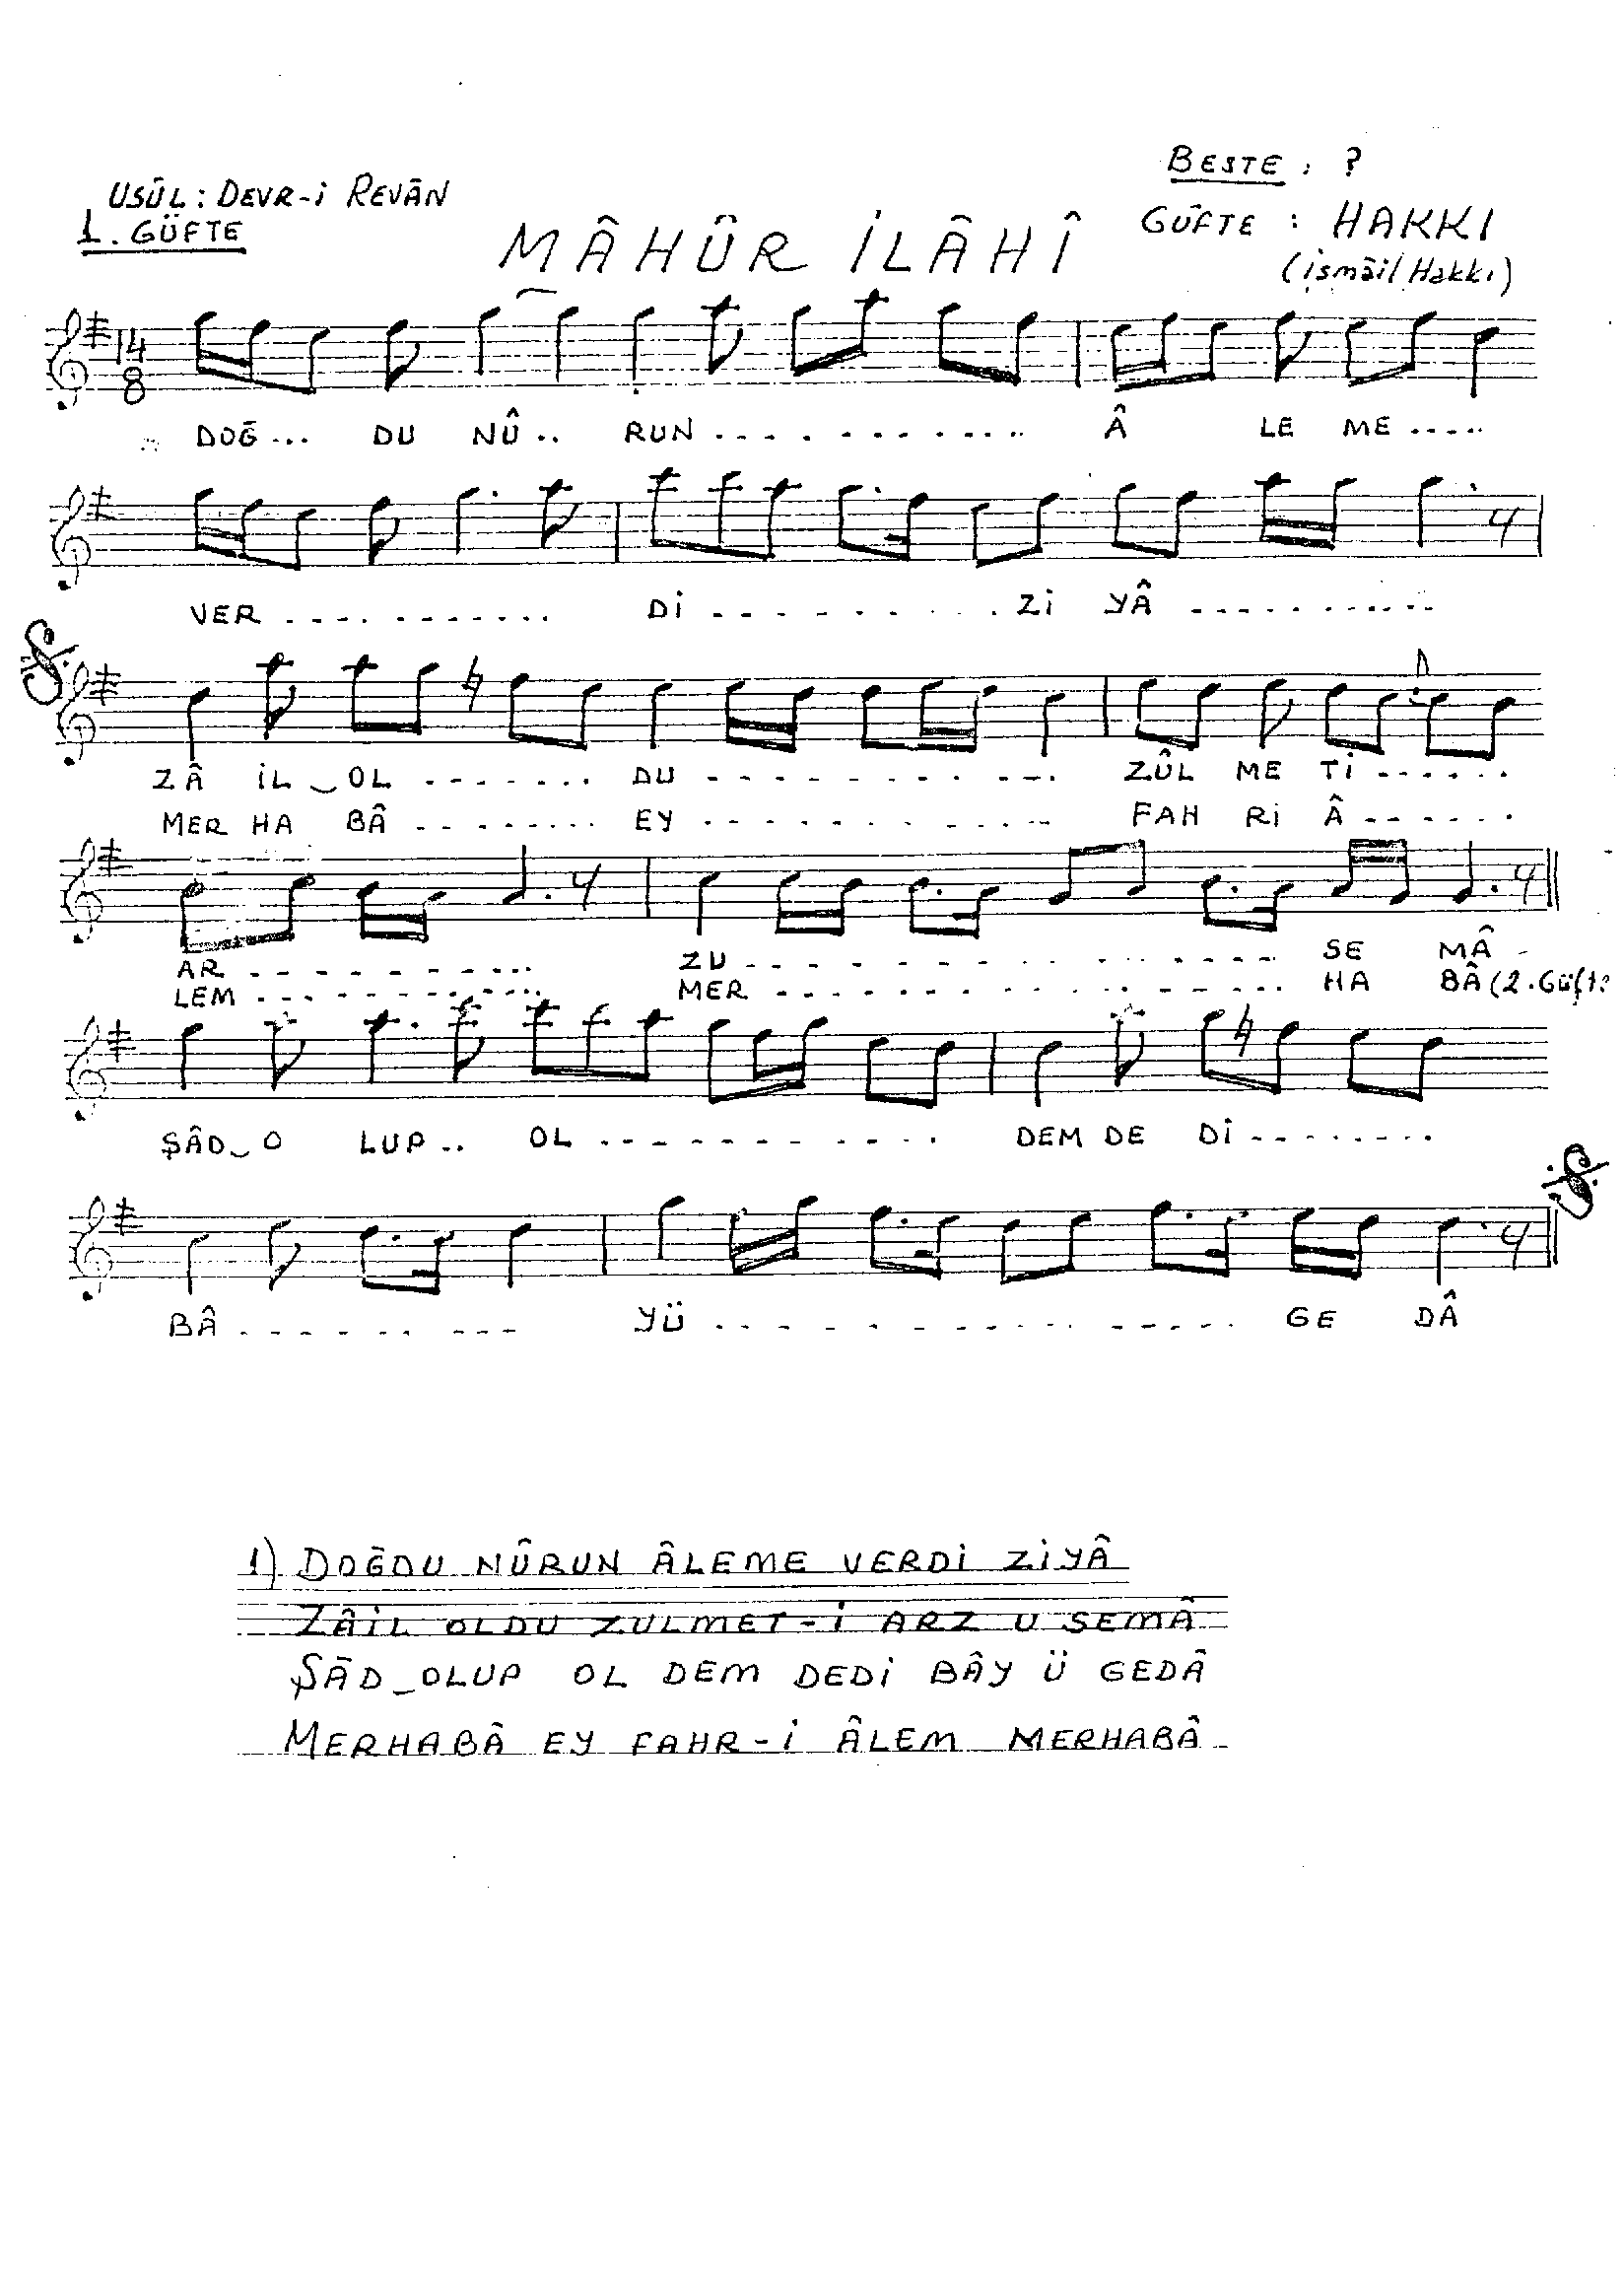 BESTE : ?
USÛL : DEVR-İ REVÂN
1. GÜFTE
GÜFTE : HAKKI
MÂHÛR İLÂHÎ
(İsmâil Hakkı)
14
8
DOĞ... DU NÛ.. RUN ............... Â LE ME .....
VER ........... Dİ ........... Zİ YÂ ...........
ZÂ İL_OL ....... DU ........... ZÛL ME Tİ ......
MER HA BÂ ........ EY ........... FAH Rİ Â ......
AR ........... ZU .............. SE MÂ -
LEM ........... MER .............. HA BÂ (2. Güft:
ŞÂD_O LUP .. OL ........... DEM DE Dİ ........
BÂ ......... YÜ .............. GE DÂ
1) DOĞDU NÛRUN ÂLEME VERDİ ZİYÂ
ZÂİL OLDU ZULMET-İ ARZ U SEMÂ
ŞÂD_OLUP OL DEM DEDİ BÂY Ü GEDÂ
MERHABÂ EY FAHR-İ ÂLEM MERHABÂ